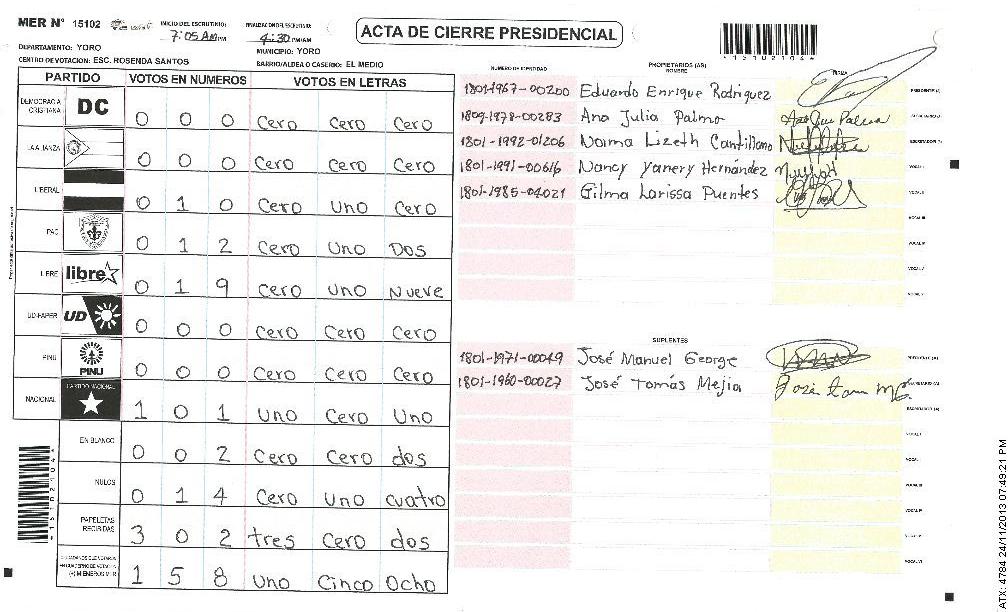 MER N° 15102 INICIO DEL ESCRUTINIO: 7:05 AM PM FINALIZACION ESCRUTINIO: 4:30 PM/AM
ACTA DE CIERRE PRESIDENCIAL
DEPARTAMENTO: YORO MUNICIPIO: YORO
CENTRO DE VOTACION: ESC. ROSENDA SANTOS BARRIO/ALDEA O CASERIO: EL MEDIO
*15102104*
PARTIDO VOTOS EN NUMEROS VOTOS EN LETRAS
DEMOCRACIA CRISTIANA DC 0 0 0 Cero Cero Cero
LA ALIANZA 0 0 0 Cero Cero Cero
LIBERAL 0 1 0 Cero Uno Cero
PAC 0 1 2 Cero Uno Dos
LIBRE libre 0 1 9 Cero Uno Nueve
UD-FAPER UD 0 0 0 Cero Cero Cero
PINU PINU 0 0 0 Cero Cero Cero
NACIONAL PARTIDO NACIONAL 1 0 1 Uno Cero Uno
EN BLANCO 0 0 2 Cero Cero dos
NULOS 0 1 4 Cero Uno cuatro
PAPELETAS RECIBIDAS 3 0 2 tres Cero dos
CIUDADANOS QUE VOTARON EN CUADERNO DE VOTACION (+) MIEMBROS MER 1 5 8 Uno Cinco Ocho
NUMERO DE IDENTIDAD PROPIETARIOS (AS) NOMBRE FIRMA
1801-1967-00200 Eduardo Enrique Rodriguez PRESIDENTE (A)
1809-1978-00283 Ana Julia Palma SECRETARIO (A)
1801-1992-01206 Norma Lizeth Cantillano ESCRUTADOR (A)
1801-1991-00616 Nancy Yanery Hernández VOCAL I
1801-1985-04021 Gilma Larissa Puentes VOCAL II
VOCAL III
VOCAL IV
VOCAL V
SUPLENTES
1801-1971-00049 José Manuel George PRESIDENTE (A)
1801-1960-00027 José Tomás Mejia SECRETARIO (A)
ESCRUTADOR (A)
VOCAL I
VOCAL II
VOCAL III
VOCAL IV
VOCAL V
VOCAL VI
*15102104*
ATX: 4784 24/11/2013 07:49:21 PM